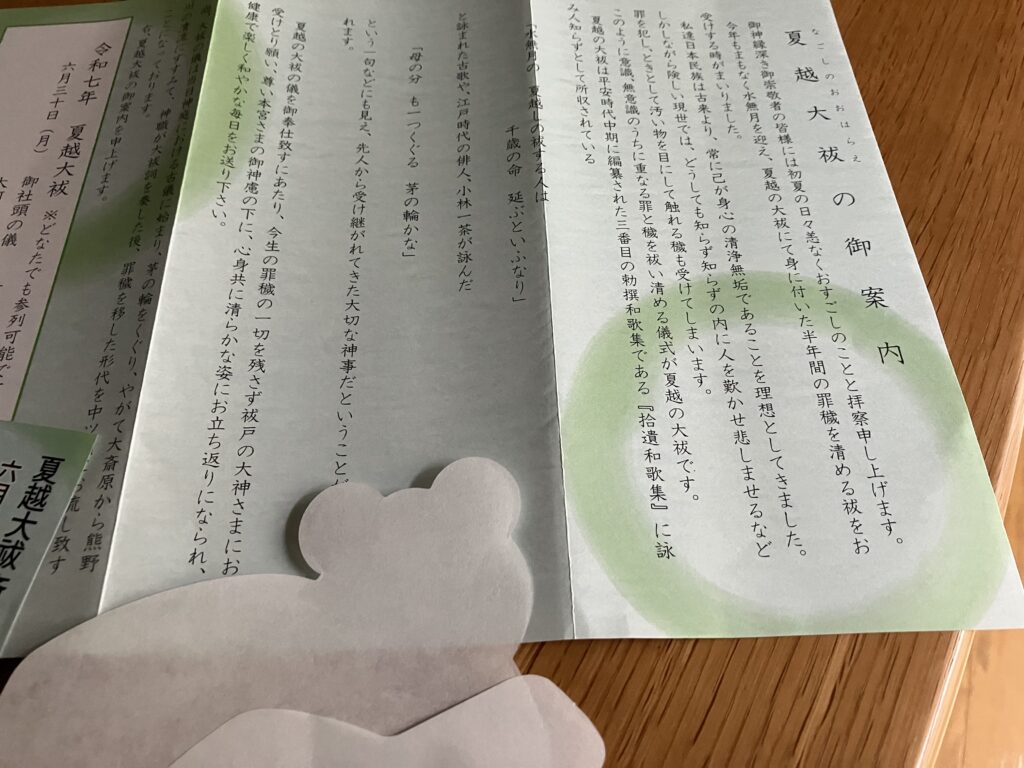 なごしのおおはらえ
夏越大祓の御案内
御神縁深き御崇敬者の皆様には初夏の日々恙なくおすごしのことと拝察申し上げます。
今年もまもなく水無月を迎え、夏越の大祓にて身に付いた半年間の罪穢を清める祓をお
受けする時がまいりました。
私達日本民族は古来より、常に己が身心の清浄無垢であることを理想としてきました。
しかしながら険しい現世では、どうしても知らず知らずの内に人を歎かせ悲しませるなど
罪を犯し、ときとして汚い物を目にして触れる穢も受けてしまいます。
このように意識、無意識のうちに重なる罪と穢を祓い清める儀式が夏越の大祓です。
夏越の大祓は平安時代中期に編纂された三番目の勅撰和歌集である『拾遺和歌集』に詠
み人知らずとして所収されている
「水無月の 夏越しの祓する人は
千歳の命 延ぶといふなり」
と詠まれた古歌や、江戸時代の俳人、小林一茶が詠んだ
「母の分 も一つくぐる 茅の輪かな」
という一句などにも見え、先人から受け継がれてきた大切な神事だということが
れます。
夏越の大祓の儀を御奉仕致すにあたり、今生の罪穢の一切を残さず祓戸の大神さまにお
受けとり願い、尊い本宮さまの御神慮の下に、心身共に清らかな姿にお立ち返りになられ、
健康で楽しく和やかな毎日をお送り下さい。
大祓の儀は
神職が大祓詞を奏した後、罪穢を移した形代を中
に始まり、茅の輪をくぐり、やがて大斎原から熊野
流し致す
ことになっております。
夏越大祓の御案内を申上げます。
令和七年 夏越大祓 ※どなたでも参列可能で
六月三十日(月)
御社頭の儀
夏越大祓
六月